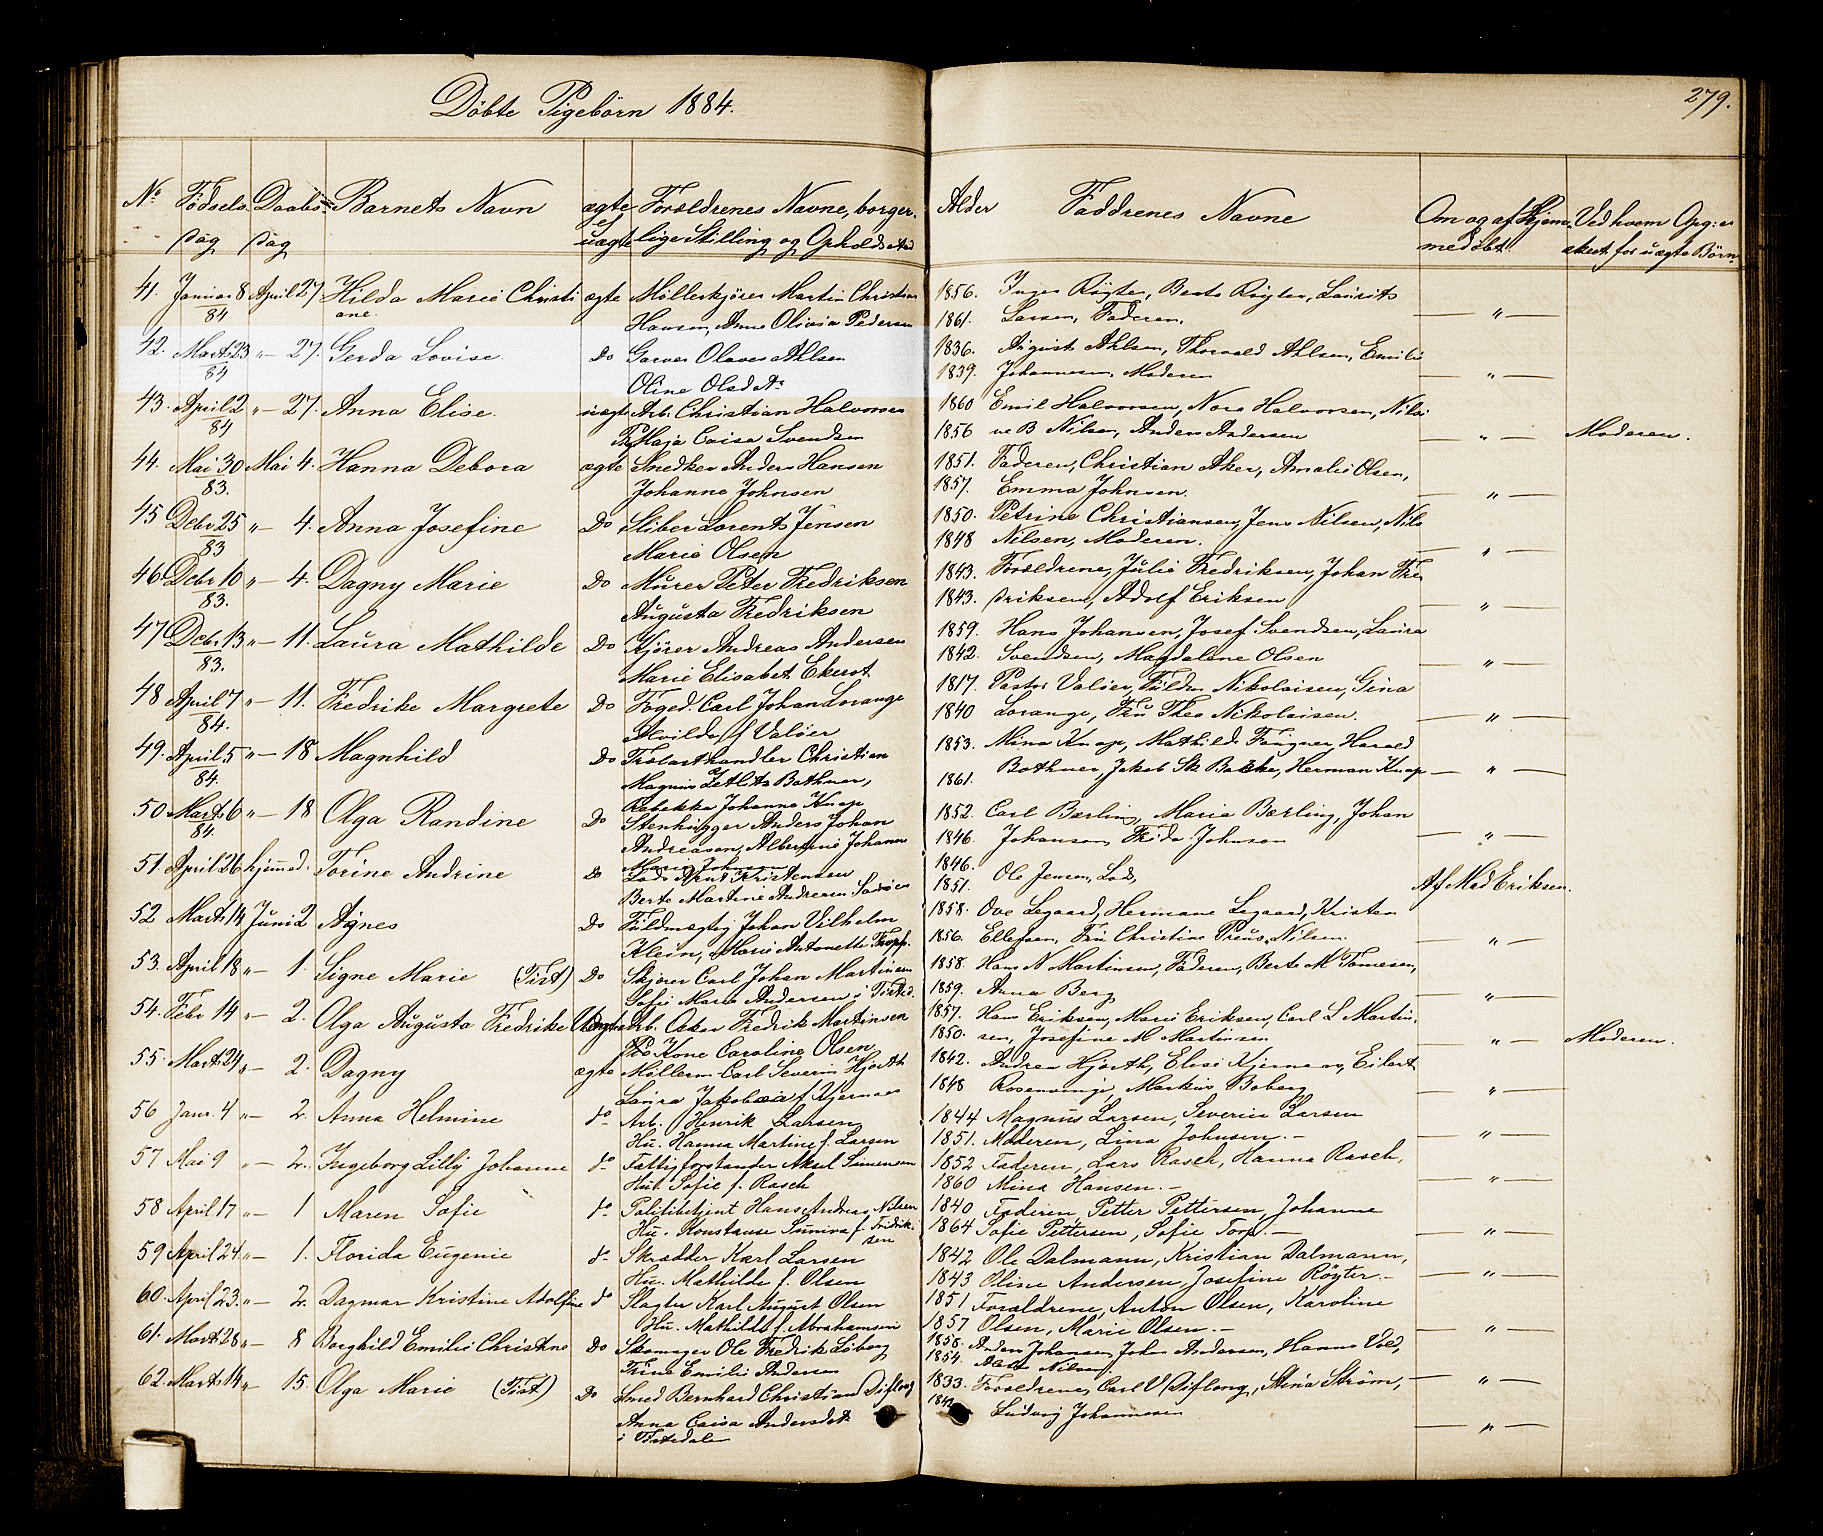 Döbte Pigebörn 1884.
279.
No Födsels Daabs= Barnets Navn ægte Forældrenes Navne, borger- Alder Faddrenes Navne Om og af Hjem- Ved hvem Opg: er
dag dag uægte lige Stilling og Opholdssted medöbt skeet for uægte Börn
41. Januar 8 April 27 Hilda Marie Christi ægte Möllerkjörer Martin Christian 1856. Inger Röyter, Berte Röyter, Laurits
84 ane. Hansen, Anne Olivia Pedersen 1861. Larsen, Faderen. — " —
42. Marts 23 " — 27. Gerda Lovise. Do Garver Olaves Ahlsen 1836. August Ahlsen, Thorvald Ahlsen, Emilie
84 Oline Olsdatr 1839. Johannesen, Moderen — " —
43. April 2 " — 27. Anna Elise. uægte Arb. Christian Halvorsen 1860 Emil Halvorsen, Nora Halvorsen, Nikoi
84 Maja Caisa Svendsen 1856 ne B Nilsen, Anders Andersen — " — Moderen.
44. Mai 30 Mai 4. Hanna Debora ægte Snedker Anders Hansen 1851. Faderen, Christian Aker, Amalie Olsen,
83. Johanne Johnsen 1857. Emma Johnsen. — " —
45 Decbr 25 " — 4. Anna Josefine Do Sliber Lorents Jensen 1850. Petrine Christiansen, Jens Nilsen, Nils
83 Marie Olsen 1848 Nilsen, Moderen. — " —
46. Decbr 10 " — 4. Dagny Marie Do Murer Peter Fredriksen 1843. Forældrene, Julie Fredriksen, Johan Fre
83. Augusta Fredriksen 1843. driksen, Adolf Eriksen — " —
47 Decbr 13 " — 11. Laura Mathilde Do Kjörer Andreas Andersen 1859. Hans Johansen, Josef Svendsen, Laura
83. Marie Elisabet Ekerst 1842. Svendsen, Magdalene Olsen — " —
48 April 7 " — 11. Fredrike Margrete Do Foged. Carl Johan Lorange 1817. Pastor Valöer, Nikolaisen, Gina
84. Alvilde f Valöer 1840 Lorange, Fru Thea Nikolaisen. — " —
49. April 5 " — 18 Magnhild Do Trælasthandler Christian 1853. Mina Knap, Mathilde Fangner, Harald
84. Magnus Zetlits Bothner, 1861. Bothner, Jakob Sk Backe, Herman Knap — " —
Rebekka Johanne Knap
50 Marts 6 " — 18 Olga Randine Do Stenhugger Anders Johan 1852. Carl Barling, Maria Barling, Johan
84. Andreasen, Albertine Johanne 1846. Johansen, Frida Johnson — " —
Marie Johnsen
51. April 26 hjemmed. Torine Andrine Do Lods Arnt Kristensen 1846. Ole Jensen, Lods,
Berte Martine Andersen 1851. Af Mad Eriksen.
52 Marts 14 Juni 2 Agnes Do Fuldmægtig Johan Vilhelm 1858. Ove Legaard, Hermane Legaard, Kristen
Klein, Marie Antonette Thopp. 1856. Ellefsen, Fru Christine Preus, Nilsen — " —
53. April 18 " — 1. Signe Marie (Tist) Do Skjörer Carl Johan Martinsen 1858. Hans N Martinsen, Faderen, Berte M Tomesen,
Sofie Marie Andersen i Tisted. 1859. Anna Berg — " —
54. Febr 14 " — 2. Olga Augusta Fredrike Uægte Arb. Oskar Fredrik Martinsen 1857. Hans Eriksen, Marie Eriksen, Carl L Martin-
Kone Caroline Olsen 1850. sen, Josefine M Martinsen — " — Moderen.
55. Marts 24 " — 2. Dagny ægte Möllerm Carl Severin Hjorth 1842. Andrea Hjorth, Elise Kjernaes, Eilert
Laura Jakobæa f Kjernaes 1848 Rosenvinge, Markus Boberg — " —
56 Janr. 4 " — 2. Anna Helmine do Arb. Henrik Larsen 1844 Magnus Larsen, Severin Larsen
Hu. Hanna Martine f. Larsen 1851. Moderen, Lina Johnsen. — — " —
57 Mai 9 " — 2. Ingeborg Lilly Johanne do Fattigforstander Aksel Simensen 1852 Faderen, Lars Rasch, Hanna Rasch,
Hu. Sofie f. Rasch 1860 Mina Hansen. — — " —
58 April 17 " — 1 Maren Sofie do Politibetjent Hans Andreas Nilsen 1840 Faderen, Petter Pettersen, Johanne
Hu. Konstanse Suniva f. Fredrik- 1864 Sofie Pettersen, Sofie Torp. — — " —
sen
59 April 24 " — 1. Florida Eugenie do Skrædder Karl Larsen 1842 Ole Dalmann, Kristian Dalmann,
Hu. Mathilde f. Olsen 1843 Oline Andersen, Josefine Röyter. — — " —
60. April 23. " — 2. Dagmar Kristine Adolfine do Slagter Karl August Olsen 1851 Forældrene, Anton Olsen, Karoline
Hu. Mathilde f. Abrahamsen 1857 Olsen, Marie Olsen. — — " —
61. Marts 28 " — 8 Borghild Emilie Christine Do Skomager Ole Fredrik Löberg 1858. Anders Johansen, John Andersen, Hanne Vold,
Trine Emilie Andersen 1854. Nilsen
62. Marts 14 " — 15. Olga Marie (Tist) Do Smed Bernhard Christian Difleng 1833. Forældrene, Carl V Difleng, Stina Ström, — " —
Anna Caisa Andersdatr 184 Ludvig Johannesen
i Tistedalen — " —